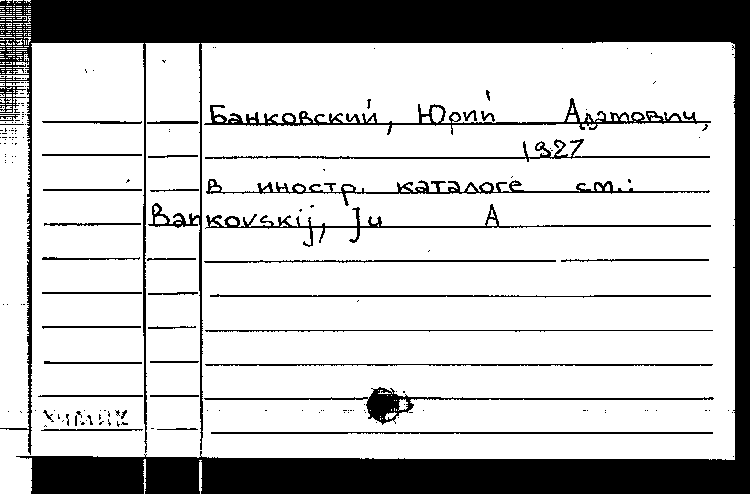 Банковский, Юрий Адамович,
1927
в иностр. каталоге см.:
Bankovskij, Ju A
химик